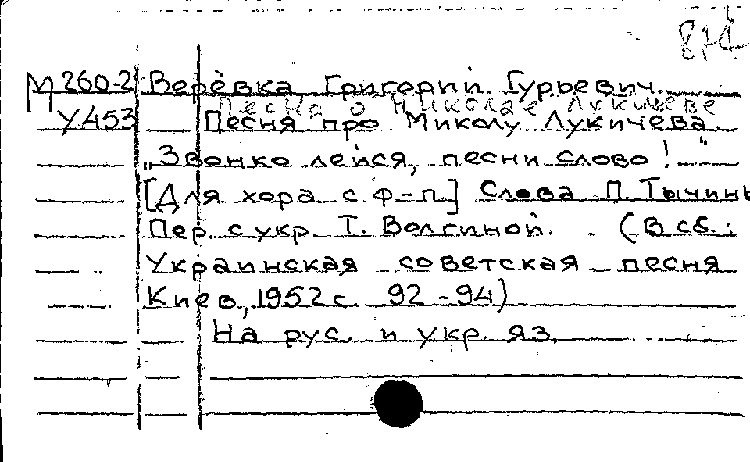 М 260-2 Верёвка Григорий Гурьевич.
Песня о Николае Лукичеве
У453 Песня про Миколу Лукичева
„Звонко лейся, песни слово!"
[Для хора с ф-п] Слова П. Тычины
Пер. с укр. Т. Волгиной. (В сб.:
Украинская советская песня
Киев, 1952 с. 92-94)
На рус. и укр. яз.